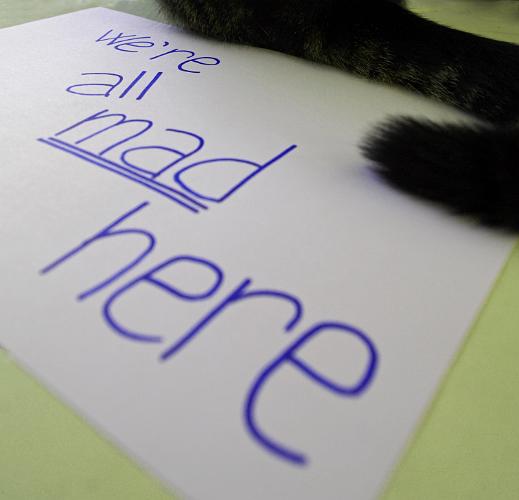 we're
all
mad
here